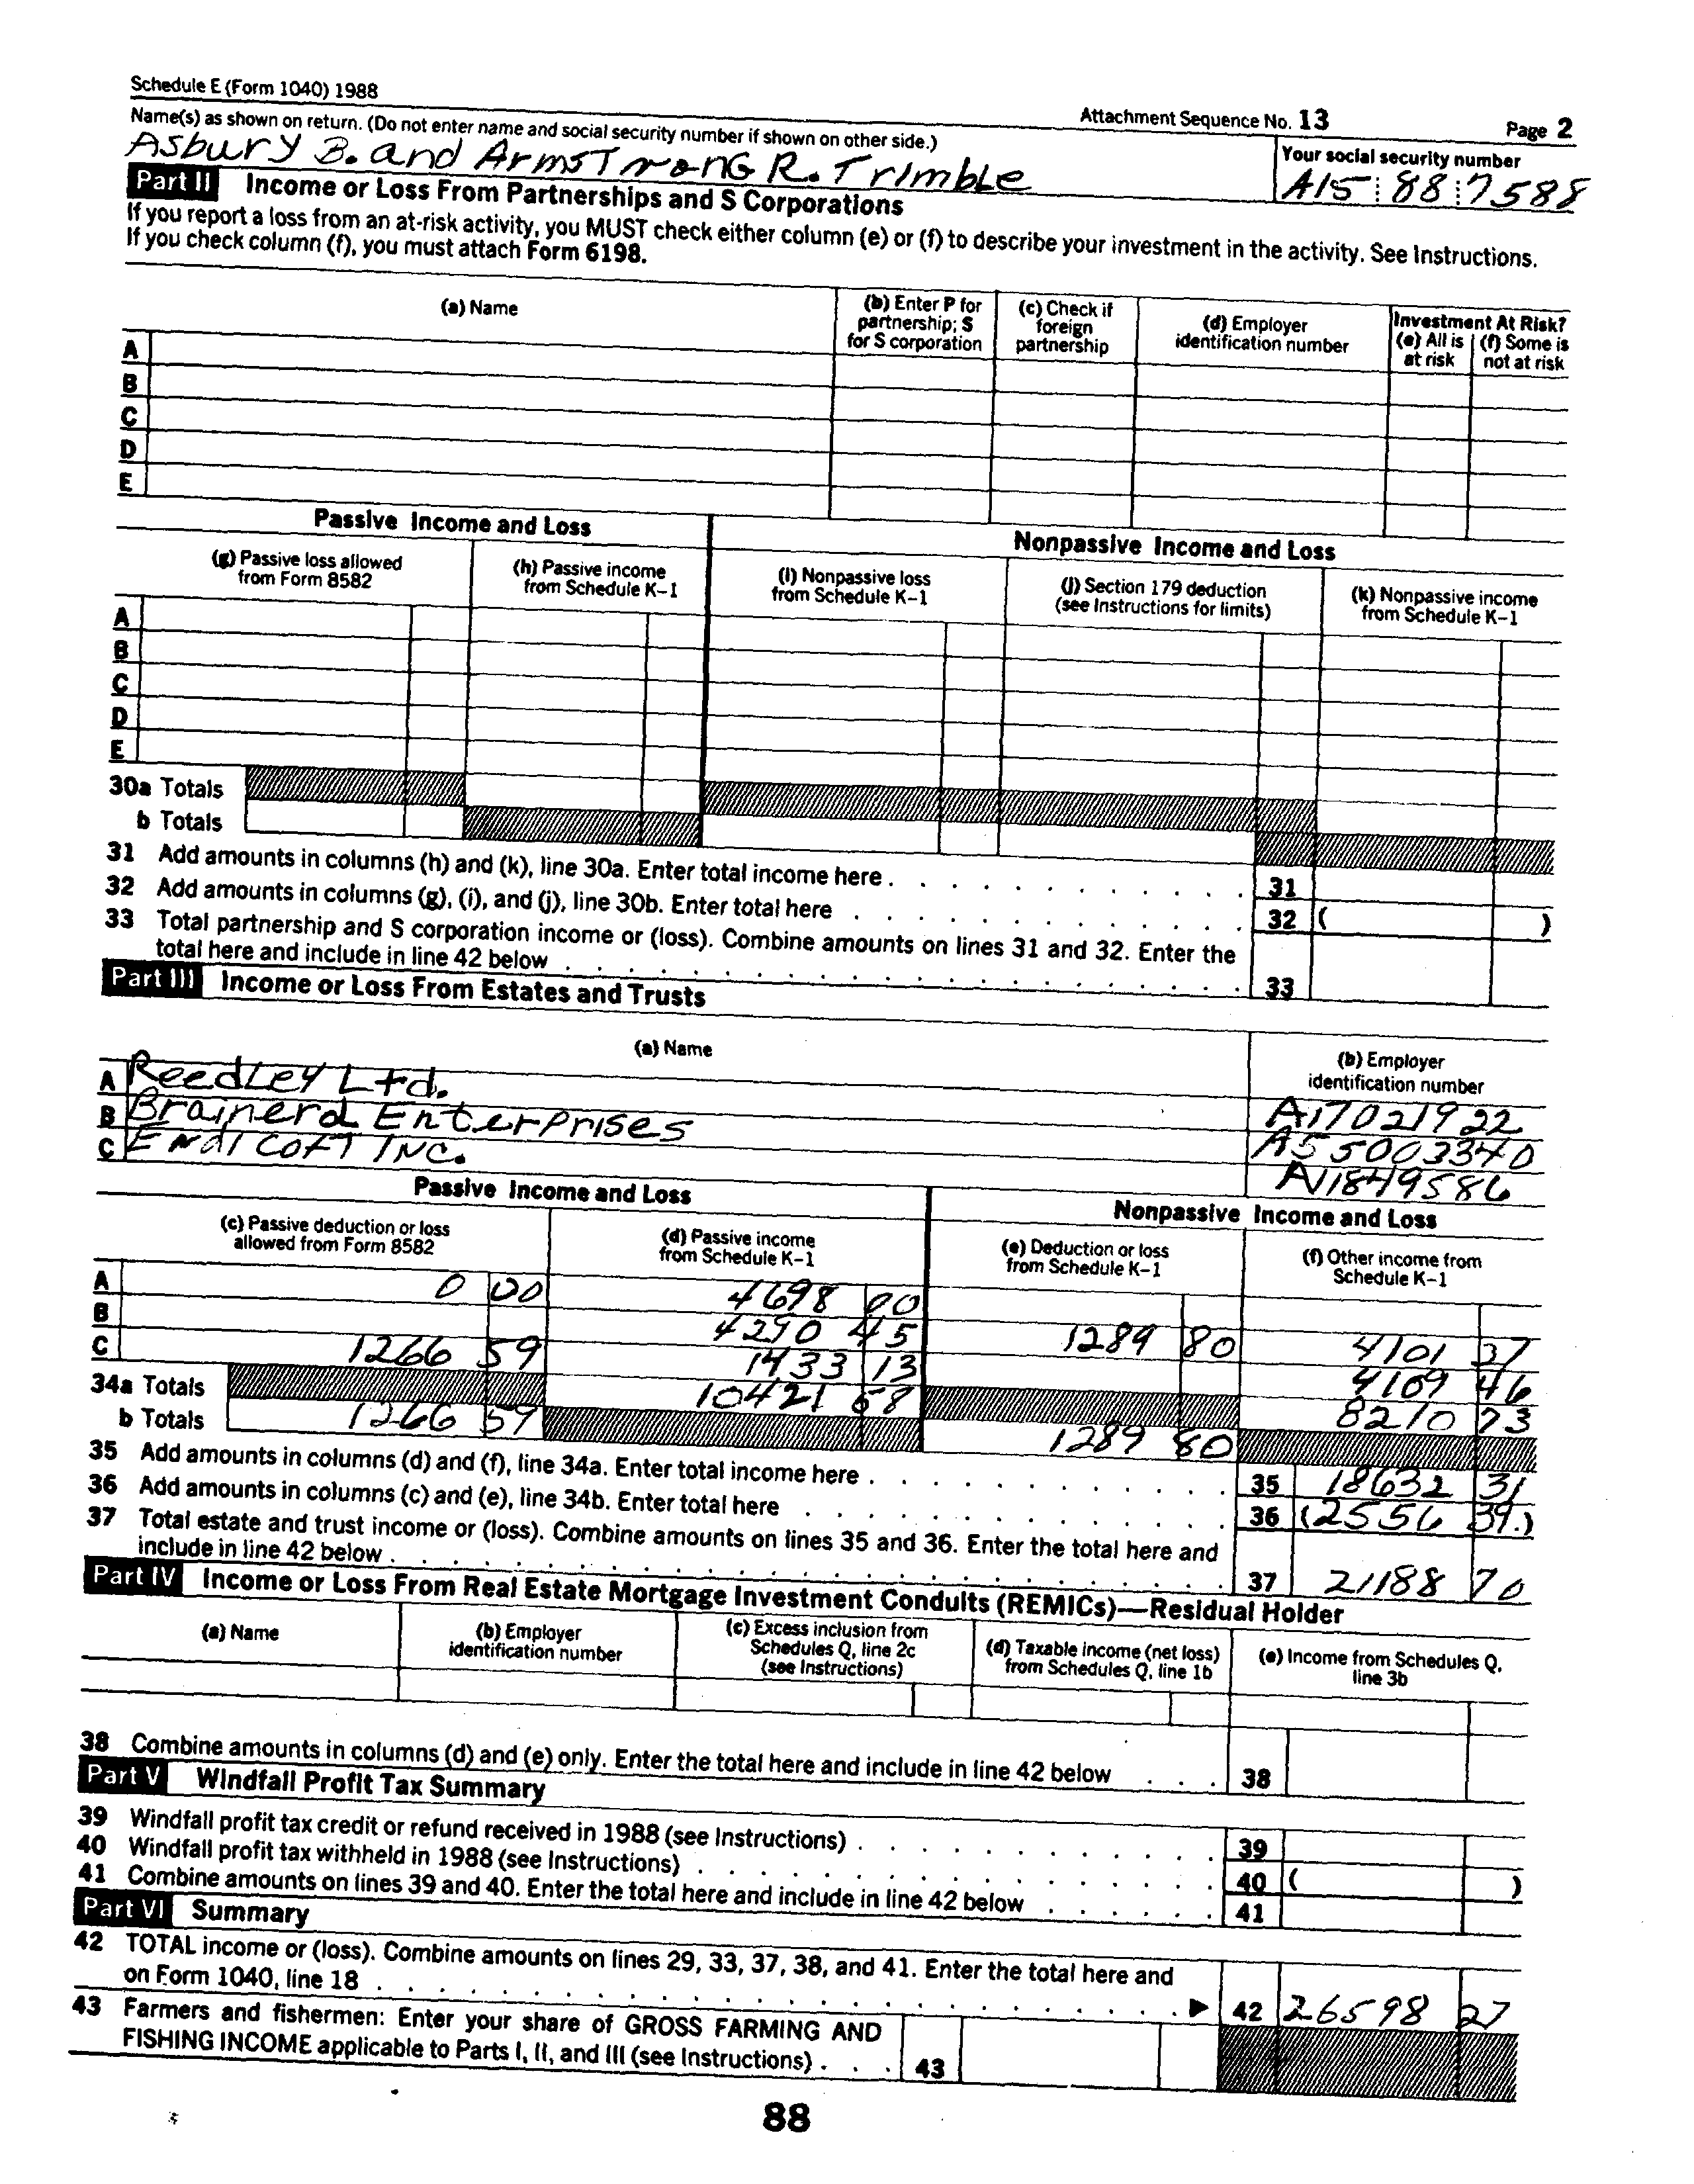 Schedule E (Form 1040) 1988
Attachment Sequence No. 13 Page 2
Name(s) as shown on return. (Do not enter name and social security number if shown on other side.)
Your social security number
Asbury B. and Armstrong R. Trimble
A15 88 7588
Part II Income or Loss From Partnerships and S Corporations
If you report a loss from an at-risk activity, you MUST check either column (e) or (f) to describe your investment in the activity. See Instructions.
If you check column (f), you must attach Form 6198.
(a) Name
(b) Enter P for partnership; S for S corporation
(c) Check if foreign partnership
(d) Employer identification number
Investment At Risk?
(e) All is at risk
(f) Some is not at risk
A
B
C
D
E
Passive Income and Loss
Nonpassive Income and Loss
(g) Passive loss allowed from Form 8582
(h) Passive income from Schedule K-1
(i) Nonpassive loss from Schedule K-1
(j) Section 179 deduction (see Instructions for limits)
(k) Nonpassive income from Schedule K-1
A
B
C
D
E
30a Totals
b Totals
31 Add amounts in columns (h) and (k), line 30a. Enter total income here . 31
32 Add amounts in columns (g), (i), and (j), line 30b. Enter total here 32 ( )
33 Total partnership and S corporation income or (loss). Combine amounts on lines 31 and 32. Enter the
total here and include in line 42 below 33
Part III Income or Loss From Estates and Trusts
(a) Name
(b) Employer identification number
A Reedley Ltd. A17021922
B Brainerd Enterprises A55003340
C Endicott Inc. A11849586
Passive Income and Loss
Nonpassive Income and Loss
(c) Passive deduction or loss allowed from Form 8582
(d) Passive income from Schedule K-1
(e) Deduction or loss from Schedule K-1
(f) Other income from Schedule K-1
A 0 00 4698 00
B 4290 45 1289 80 4101 37
C 1266 59 1433 13 4109 46
34a Totals 10421 58 8210 73
b Totals 1266 59 1289 80
35 Add amounts in columns (d) and (f), line 34a. Enter total income here . 35 18632 31
36 Add amounts in columns (c) and (e), line 34b. Enter total here 36 (2556 39.)
37 Total estate and trust income or (loss). Combine amounts on lines 35 and 36. Enter the total here and
include in line 42 below . 37 21188 70
Part IV Income or Loss From Real Estate Mortgage Investment Conduits (REMICs)—Residual Holder
(a) Name
(b) Employer identification number
(c) Excess inclusion from Schedules Q, line 2c (see Instructions)
(d) Taxable income (net loss) from Schedules Q, line 1b
(e) Income from Schedules Q, line 3b
38 Combine amounts in columns (d) and (e) only. Enter the total here and include in line 42 below 38
Part V Windfall Profit Tax Summary
39 Windfall profit tax credit or refund received in 1988 (see Instructions) . 39
40 Windfall profit tax withheld in 1988 (see Instructions) 40 ( )
41 Combine amounts on lines 39 and 40. Enter the total here and include in line 42 below 41
Part VI Summary
42 TOTAL income or (loss). Combine amounts on lines 29, 33, 37, 38, and 41. Enter the total here and
on Form 1040, line 18 ▶ 42 26598 27
43 Farmers and fishermen: Enter your share of GROSS FARMING AND
FISHING INCOME applicable to Parts I, II, and III (see Instructions) . 43
88